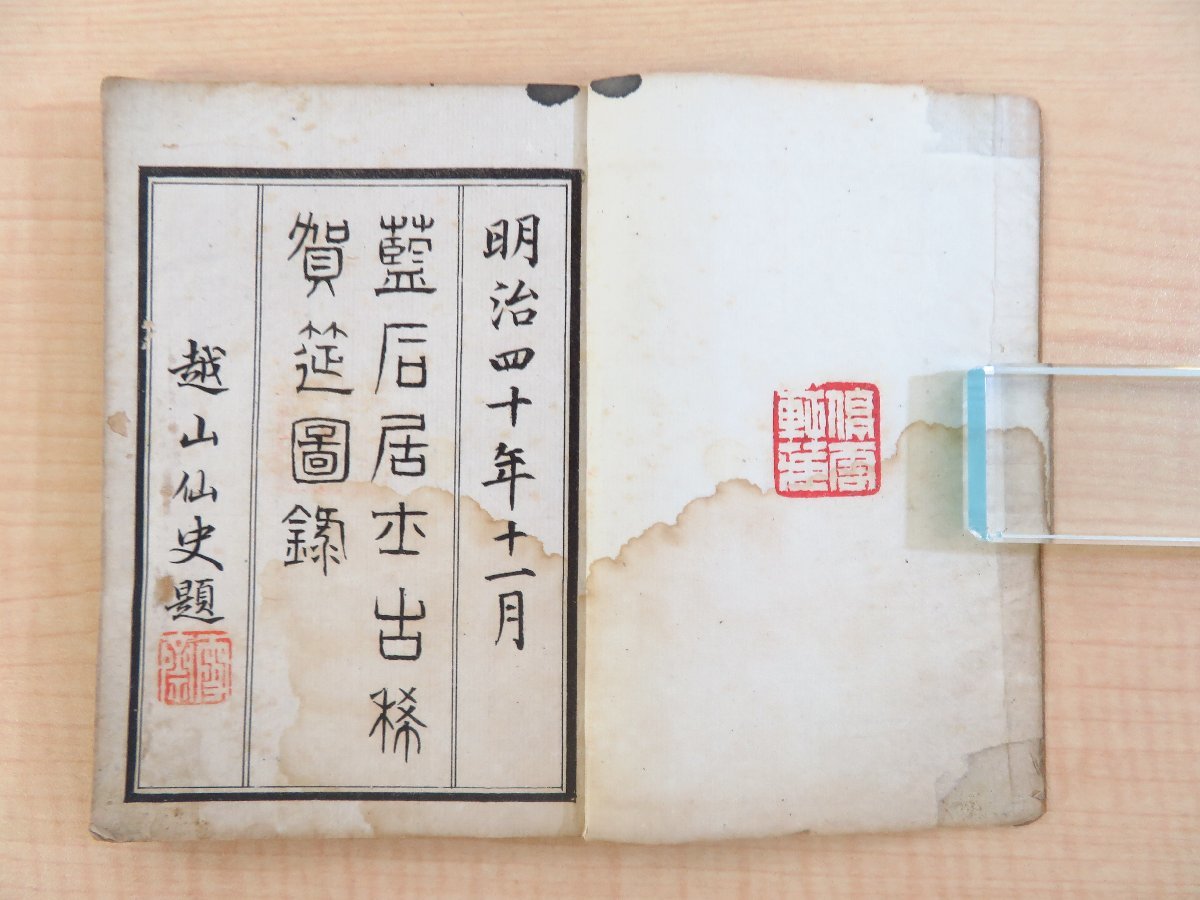 明治四十年十一月
藍石居士古稀
賀筵圖錄
越山仙史題